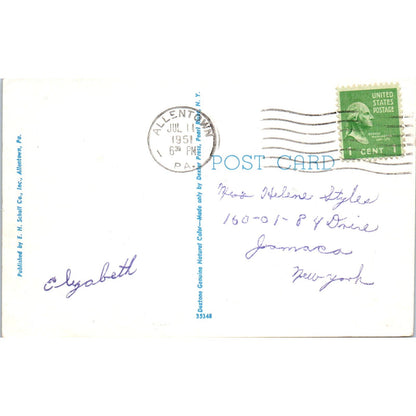 ALLENTOWN
JUL 11
1951
6 30 PM
PA.
UNITED STATES
POSTAGE
1 CENT 1
POST CARD
Mrs Helene Styles
160-01-84 Drive
Jamaca
New York
Elyabeth
Published by E. H. Scholl Co., Inc., Allentown, Pa.
Dextone Genuine Natural Color—Made only by Dexter Press, Pearl River, N. Y.
35248